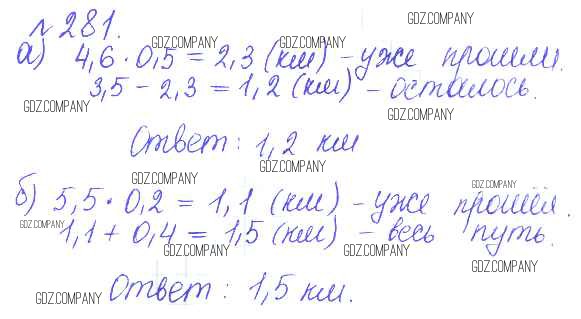 №281. GDZ.COMPANY
а) 4,6 · 0,5 = 2,3 (км) - уже прошли.
GDZ.COMPANY GDZ.COMPANY
3,5 - 2,3 = 1,2 (км) - осталось.
GDZ.COMPANY GDZ.COMPANY
Ответ: 1,2 км
GDZ.COMPANY
GDZ.COMPANY GDZ.COMPANY
б) 5,5 · 0,2 = 1,1 (км) - уже прошёл.
GDZ.COMPANY GDZ.COMPANY
1,1 + 0,4 = 1,5 (км) - весь путь.
GDZ.COMPANY GDZ.COMPANY
GDZ.COMPANY
Ответ: 1,5 км.
GDZ.COMPANY GDZ.COMPANY